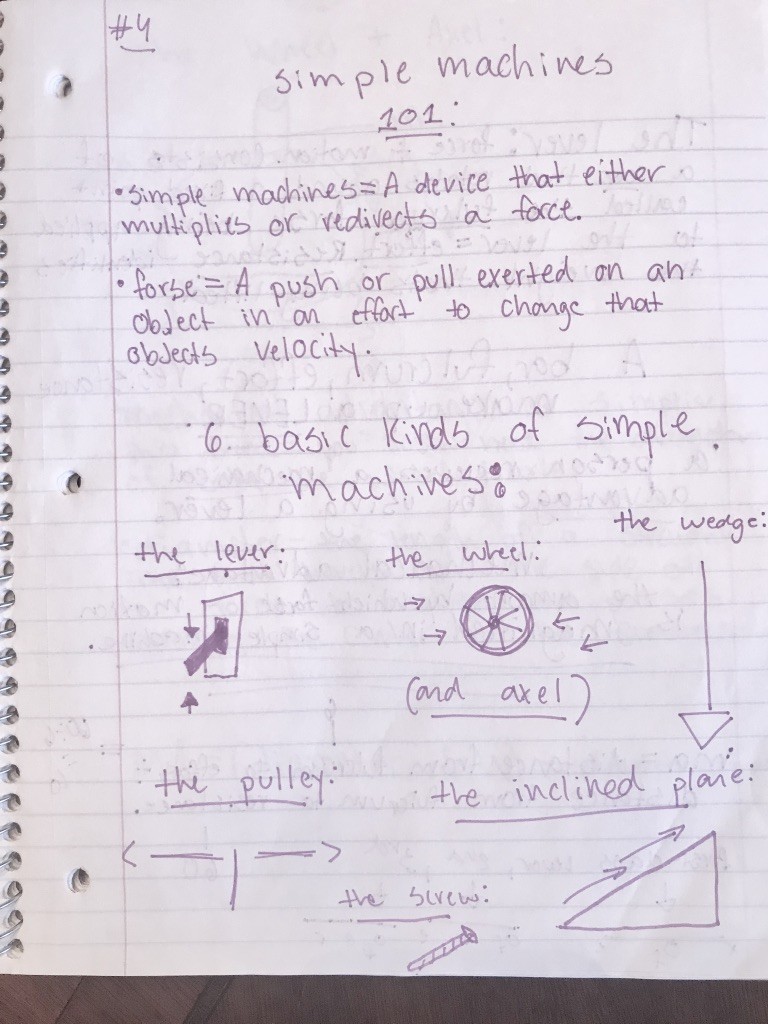 #4
simple machines
101:
• simple machines = A device that either
multiplies or redirects a force.
• forse = A push or pull exerted on an
object in an effort to change that
objects velocity.
6. basic kinds of simple
machines:
the wedge:
the lever:
the wheel:
(and axel)
the pulley:
the inclined plane:
the screw: